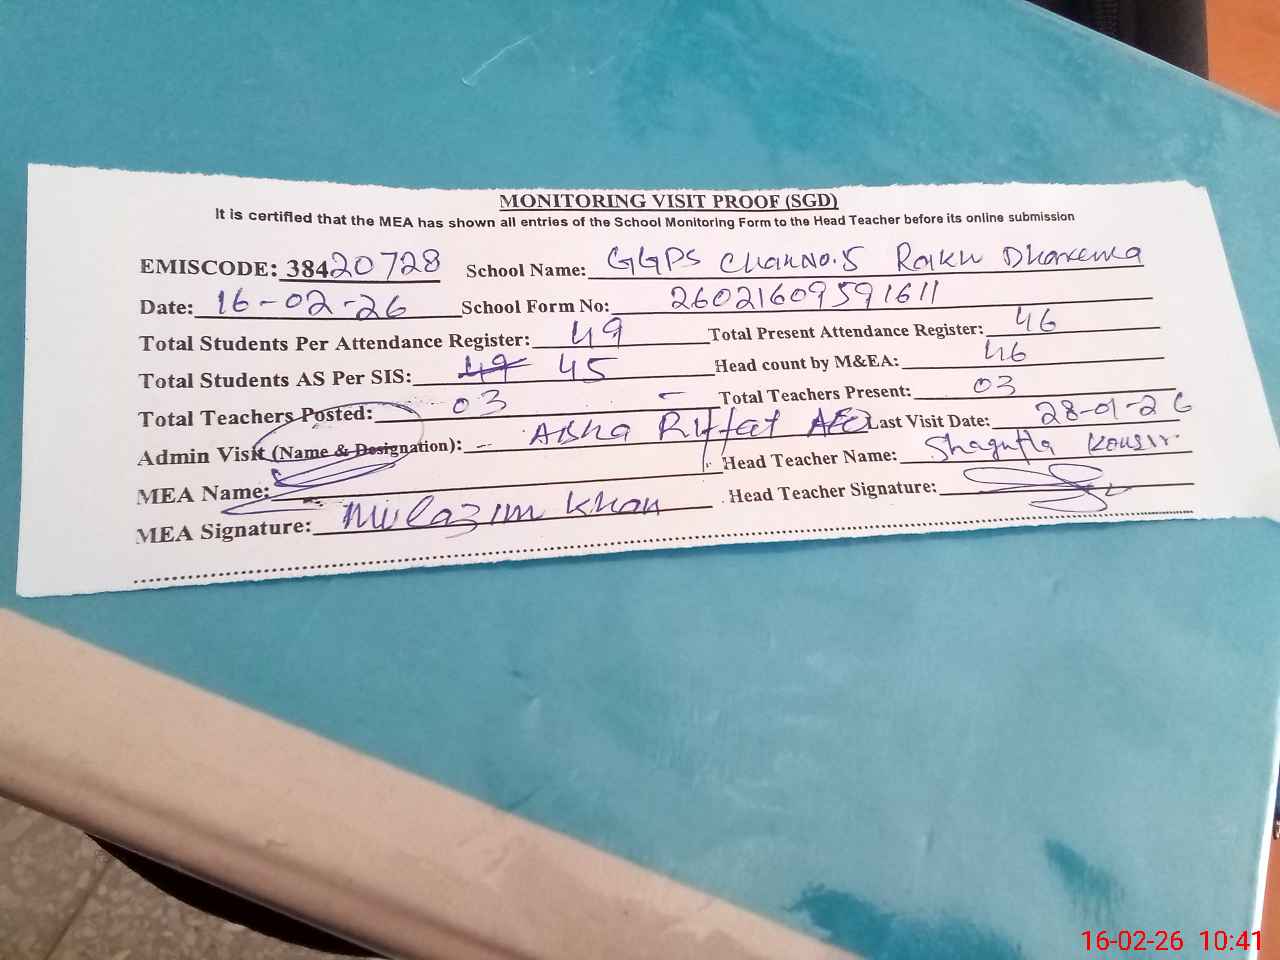 MONITORING VISIT PROOF (SGD)
It is certified that the MEA has shown all entries of the School Monitoring Form to the Head Teacher before its online submission
EMISCODE: 38420728 School Name: GGPS Chak No.5 Rakh Dharema
Date: 16-02-26 School Form No: 26021609591611
Total Students Per Attendance Register: 49 Total Present Attendance Register: 46
Total Students AS Per SIS: 49 45 Head count by M&EA: 46
Total Teachers Posted: 03 Total Teachers Present: 03
Admin Visit (Name & Designation): Aisha Riffat AEO Last Visit Date: 28-01-26
MEA Name: Head Teacher Name: Shagufta Kousir
MEA Signature: Mulazim Khan Head Teacher Signature:
16-02-26 10:41